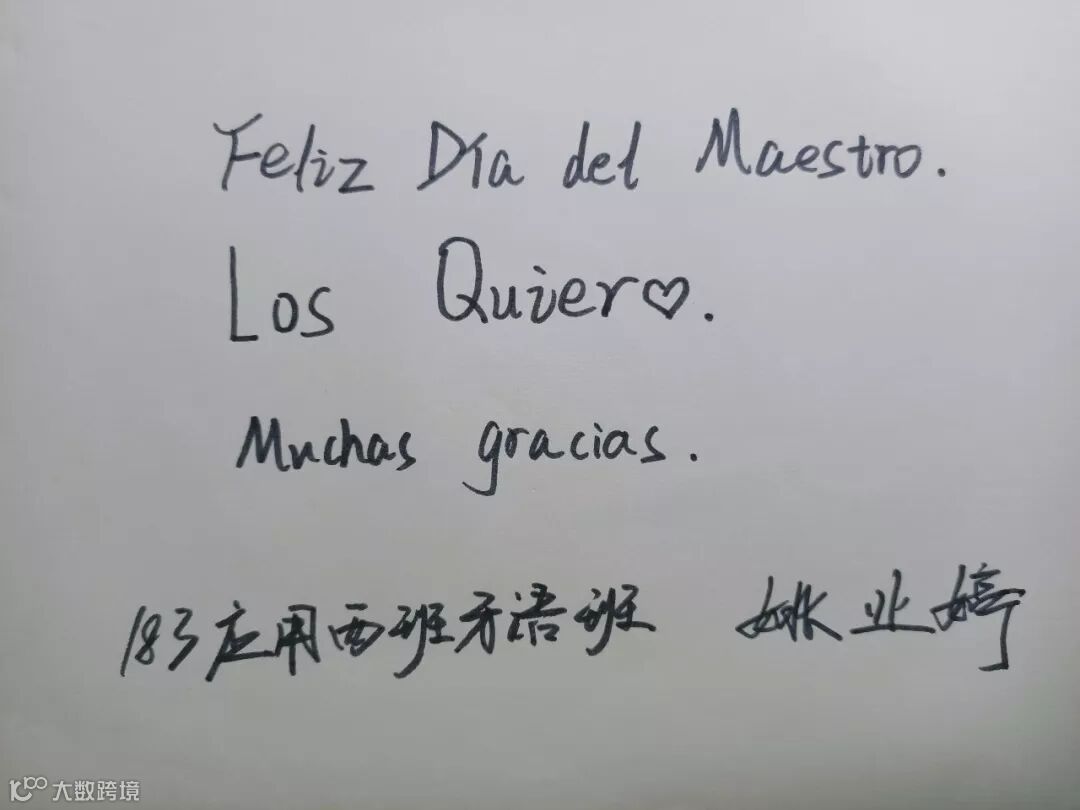 Feliz Día del Maestro.
Los Quier♡.
Muchas gracias.
183应用西班牙语班 姚业婷
大数跨境